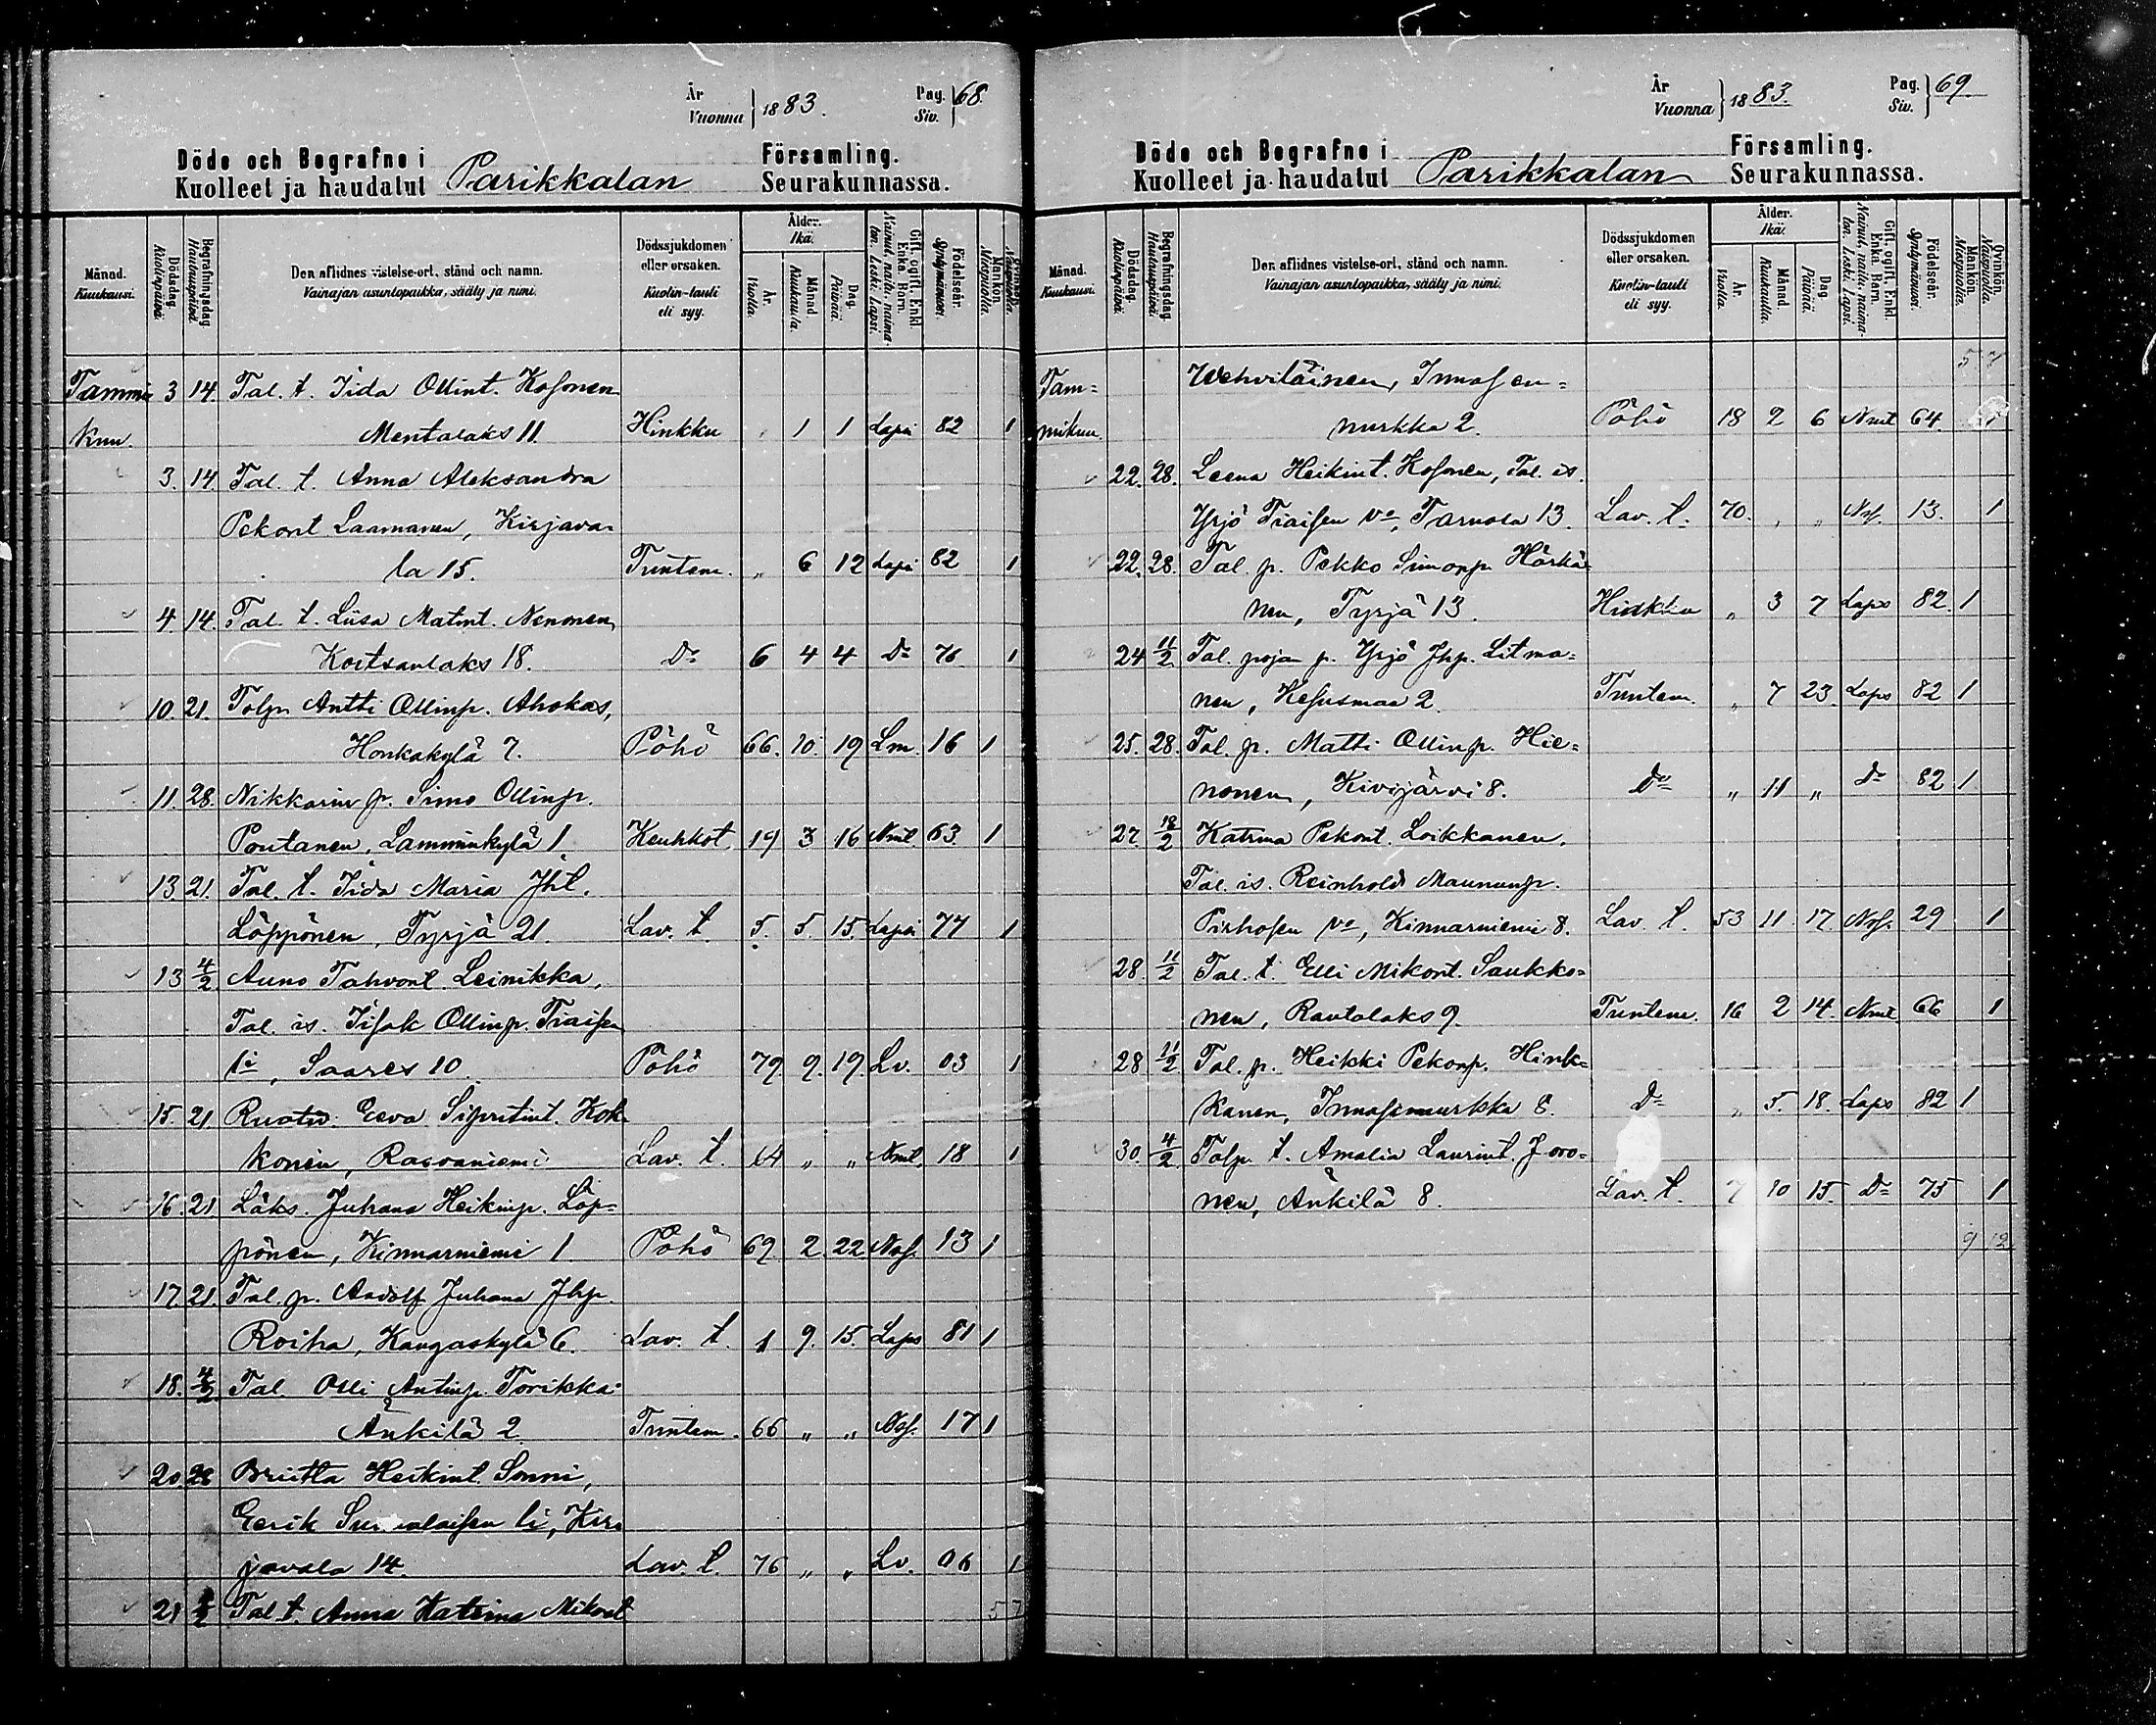 År
Vuonna } 1883. Pag. Siv. } 68.
Döde och Begrafne i Församling.
Kuolleet ja haudatut Parikkalan Seurakunnassa.
Månad. Kuukausi. Dödsdag. Kuolinpäivä. Begrafningsdag. Hautauspäivä. Den aflidnes vistelse-ort, stånd och namn. Vainajan asuntopaikka, sääty ja nimi. Dödssjukdomen eller orsaken. Kuolin-tauti eli syy. Ålder. Ikä. År. Vuotta. Månad. Kuukautta. Dag. Päivää. Gift, ogift, Enkl. Enka, Barn. Nainut, naitu, naimaton. Leski. Lapsi. Födelseår. Syntymävuosi. Mankön. Miespuolia. Qvinkön. Naispuolia.
Tammi 3 14. Tal. t. Iida Ollint. Kosonen
kuu. Mentalaks 11 Hinkku 1 1 Lapsi 82 1
3. 14. Tal. t. Anna Aleksandra
Pekont. Laamanen, Kirjava-
la 15. Tuntem. „ 6 12 Lapsi 82 1
4. 14. Tal. t. Liisa Matint. Nenonen
Koitsanlaks 18. Do 6 4 4 Do 76 1
10. 21. Talp. Antti Ollinp. Ahokas,
Honkakylä 7. Pöhö 66. 10. 19 Lm. 16 1
11. 28. Nikkarin p. Simo Ollinp.
Poutanen, Lamminkylä 1 Keuhkot. 19 3 16 Nmt. 63. 1
13. 21. Tal. t. Iida Maria Jht.
Löppönen, Tyrjä 21. Lav. t. 5. 5. 15. Lapsi 77 1
13 4/2 Auno Tahvont. Leinikka,
Tal. is. Iisak Ollinp. Tiaisen
li, Saares 10. Pöhö 79. 9. 19. Lv. 03 1
15. 21. Ruotiv. Eeva Sipritint. Kok-
konen, Rasvaniemi Lav. t. 64 „ „ Nmt. 18 1
16. 21. Läks. Juhana Heikinp. Löp-
pönen, Kinnarniemi 1 Pöhö 69. 2. 22. Nas. 13 1
17. 21. Tal. p. Aadolf Juhana Jhp.
Roiha, Kangaskylä 6. Lav. t 1 9. 15. Laps 81 1
18. 4/2 Tal. Olli Antinp. Torikka
Änkilä 2 Tuntem. 66 „ „ Nas. 17 1
20. 28 Briitta Heikint. Sonni,
Eerik li, Kir-
javala 14. Lav. t. 76 „ „ Lv. 06 1
21 Tal. t. Anna Katrina Mikont. 5 7
År
Vuonna } 1883. Pag. Siv. } 69.
Döde och Begrafne i Församling.
Kuolleet ja haudatut Parikkalan Seurakunnassa.
Månad. Kuukausi. Dödsdag. Kuolinpäivä. Begrafningsdag. Hautauspäivä. Den aflidnes vistelse-ort, stånd och namn. Vainajan asuntopaikka, sääty ja nimi. Dödssjukdomen eller orsaken. Kuolin-tauti eli syy. Ålder. Ikä. År. Vuotta. Månad. Kuukautta. Dag. Päivää. Gift, ogift, Enkl. Enka, Barn. Nainut, naitu, naimaton. Leski. Lapsi. Födelseår. Syntymävuosi. Mankön. Miespuolia. Qvinkön. Naispuolia.
5 7
Tam- Wehviläinen, Innasen-
mikuu. nurkka 2. Pöhö 18 2 6 Nmt 64.
22. 28. Leena Heikint. Kosonen, Tal. is.
Yrjö Tiaisen vo, Tarnala 13. Lav. t. 70. „ „ Nas. 13. 1
22. 28. Tal. p. Pekko Simonp. Härkö-
nen, Tyrjä 13. Hinkku „ 3 7 Laps 82. 1
24 11/2 Tal. pojan p. Yrjö Jhp. Litma-
nen, Kesusmaa 2. Tuntem. „ 7 23. Laps 82 1
25. 28. Tal. p. Matti Ollinp. Hie-
nonen, Kivijärvi 8. Do „ 11 „ Do 82 1.
27. 18/2 Katrina Pekont. Loikkanen,
Tal. is. Reinhold Maununp.
Pirhosen vo, Kinnarniemi 8. Lav. t. 53 11. 17. Nas. 29 1
28. 11/2 Tal. t. Elli Mikont. Saukko-
nen, Rautalaks 9. Tuntem. 16 2 14. Nmt. 66 1
28 11/2 Tal. p. Heikki Pekonp. Hink-
kanen, Innasennurkka 8. Do „ 5. 18. Laps 82 1
30. 4/2 Talp. t. Amalia Laurint. Joro-
nen, Änkilä 8. Lav. t. 7 10 15. Do 75 1
9 12